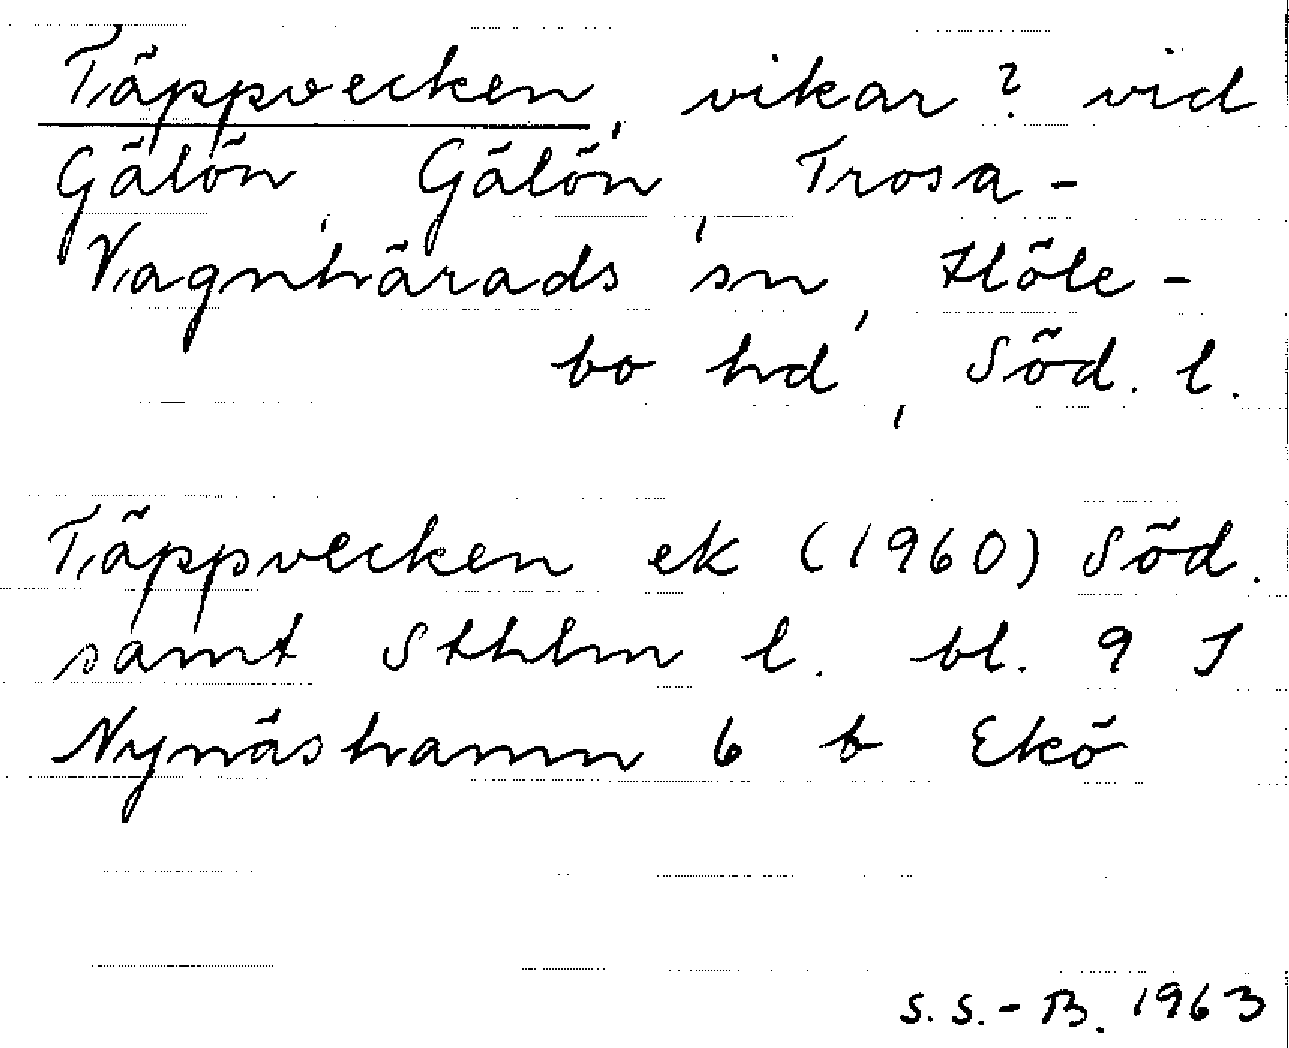 Täppvecken, vikar? vid
Gälön, Gälön, Trosa-
Vagnhärads sn, Höle-
bo hd, Söd. l.
Täppvecken ek (1960) Söd.
samt Sthlm l. bl. 9 J
Nynäshamn 6 b Ekö
S.S.-B. 1963